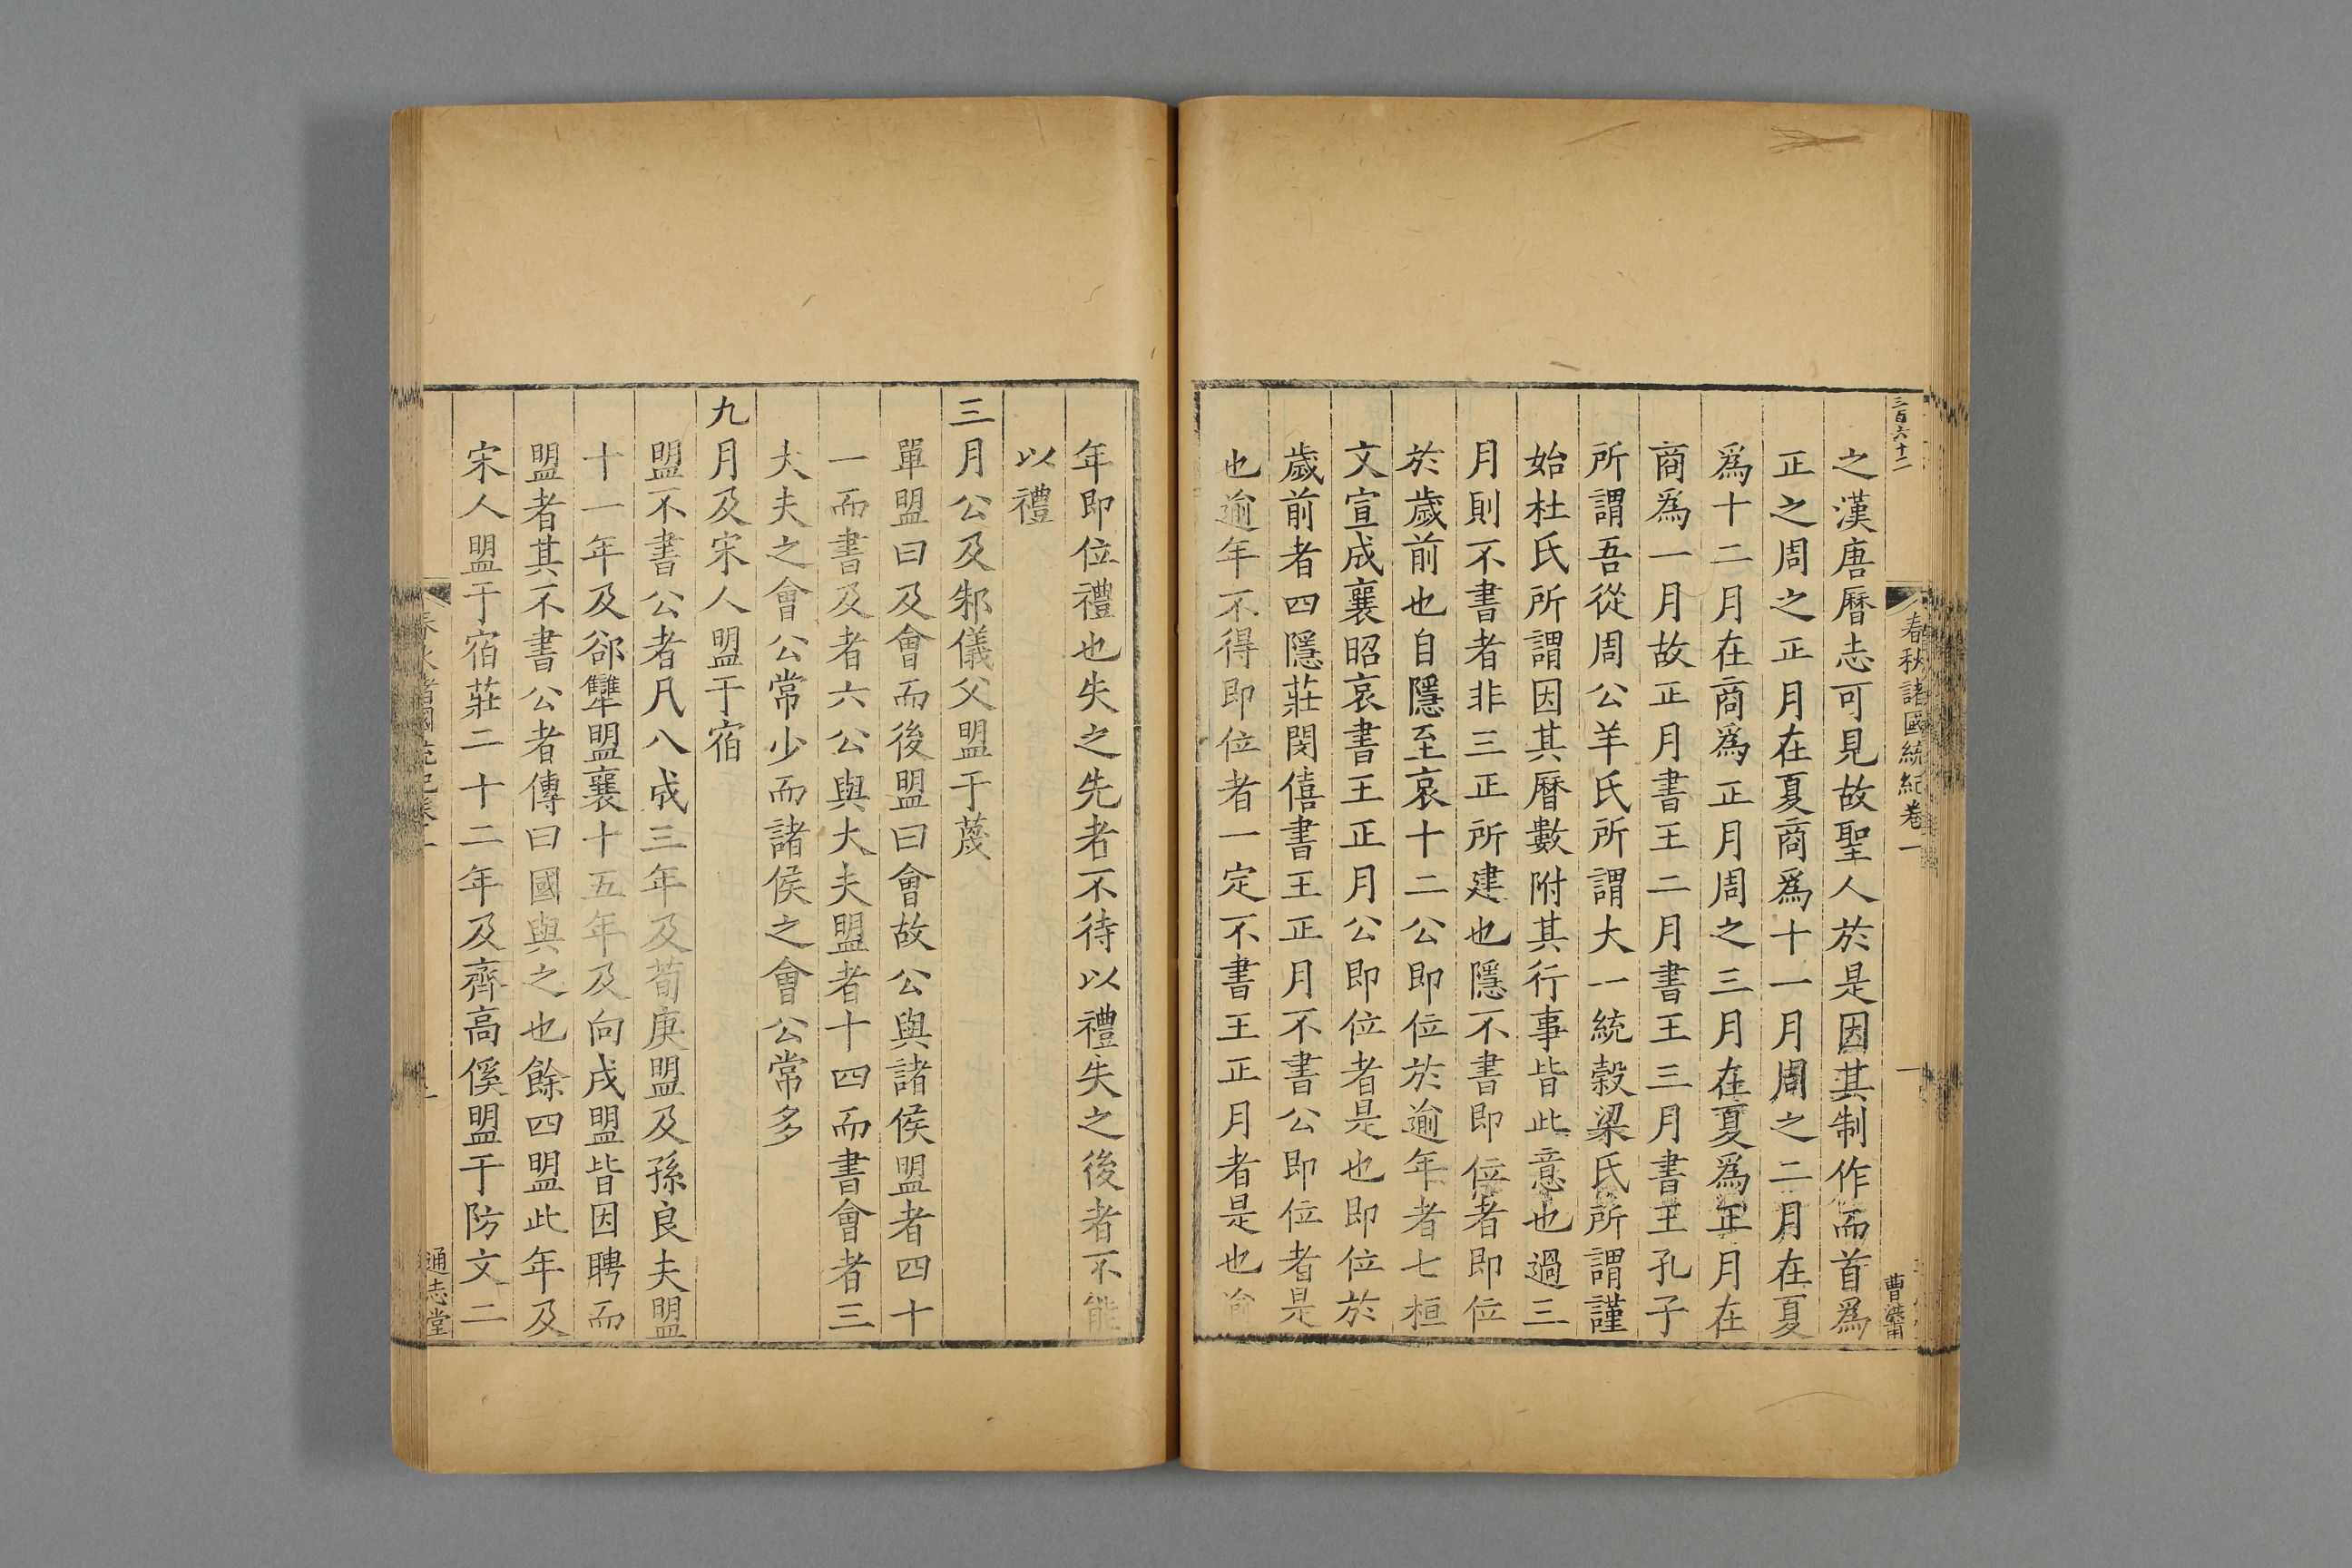 三百六十二
春秋諸國統紀卷一
一
之漢唐曆志可見故聖人於是因其制作而首爲
正之周之正月在夏商爲十一月周之二月在夏
爲十二月在商爲正月周之三月在夏爲正月在
商爲一月故正月書王二月書王三月書王孔子
所謂吾從周公羊氏所謂大一統榖梁氏所謂謹
始杜氏所謂因其曆數附其行事皆此意也過三
月則不書者非三正所建也隱不書即位者即位
於歲前也自隱至哀十二公即位於逾年者七桓
文宣成襄昭哀書王正月公即位者是也即位於
歲前者四隱莊閔僖書王正月不書公即位者是
也逾年不得即位者一定不書王正月者是也逾
年即位禮也失之先者不待以禮失之後者不能
以禮
三月公及邾儀父盟于蔑
單盟曰及會而後盟曰會故公與諸侯盟者四十
一而書及者六公與大夫盟者十四而書會者三
大夫之會公常少而諸侯之會公常多
九月及宋人盟于宿
盟不書公者凡八成三年及荀庚盟及孫良夫盟
十一年及郤犨盟襄十五年及向戌盟皆因聘而
盟者其不書公者傳曰國與之也餘四盟此年及
宋人盟于宿莊二十二年及齊高傒盟于防文二
通志堂